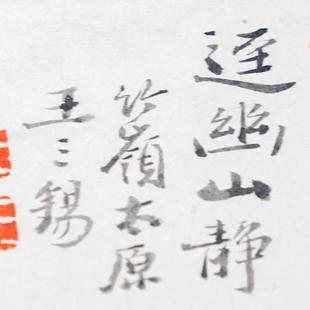 逕幽山静
竹嶺太原
王三錫